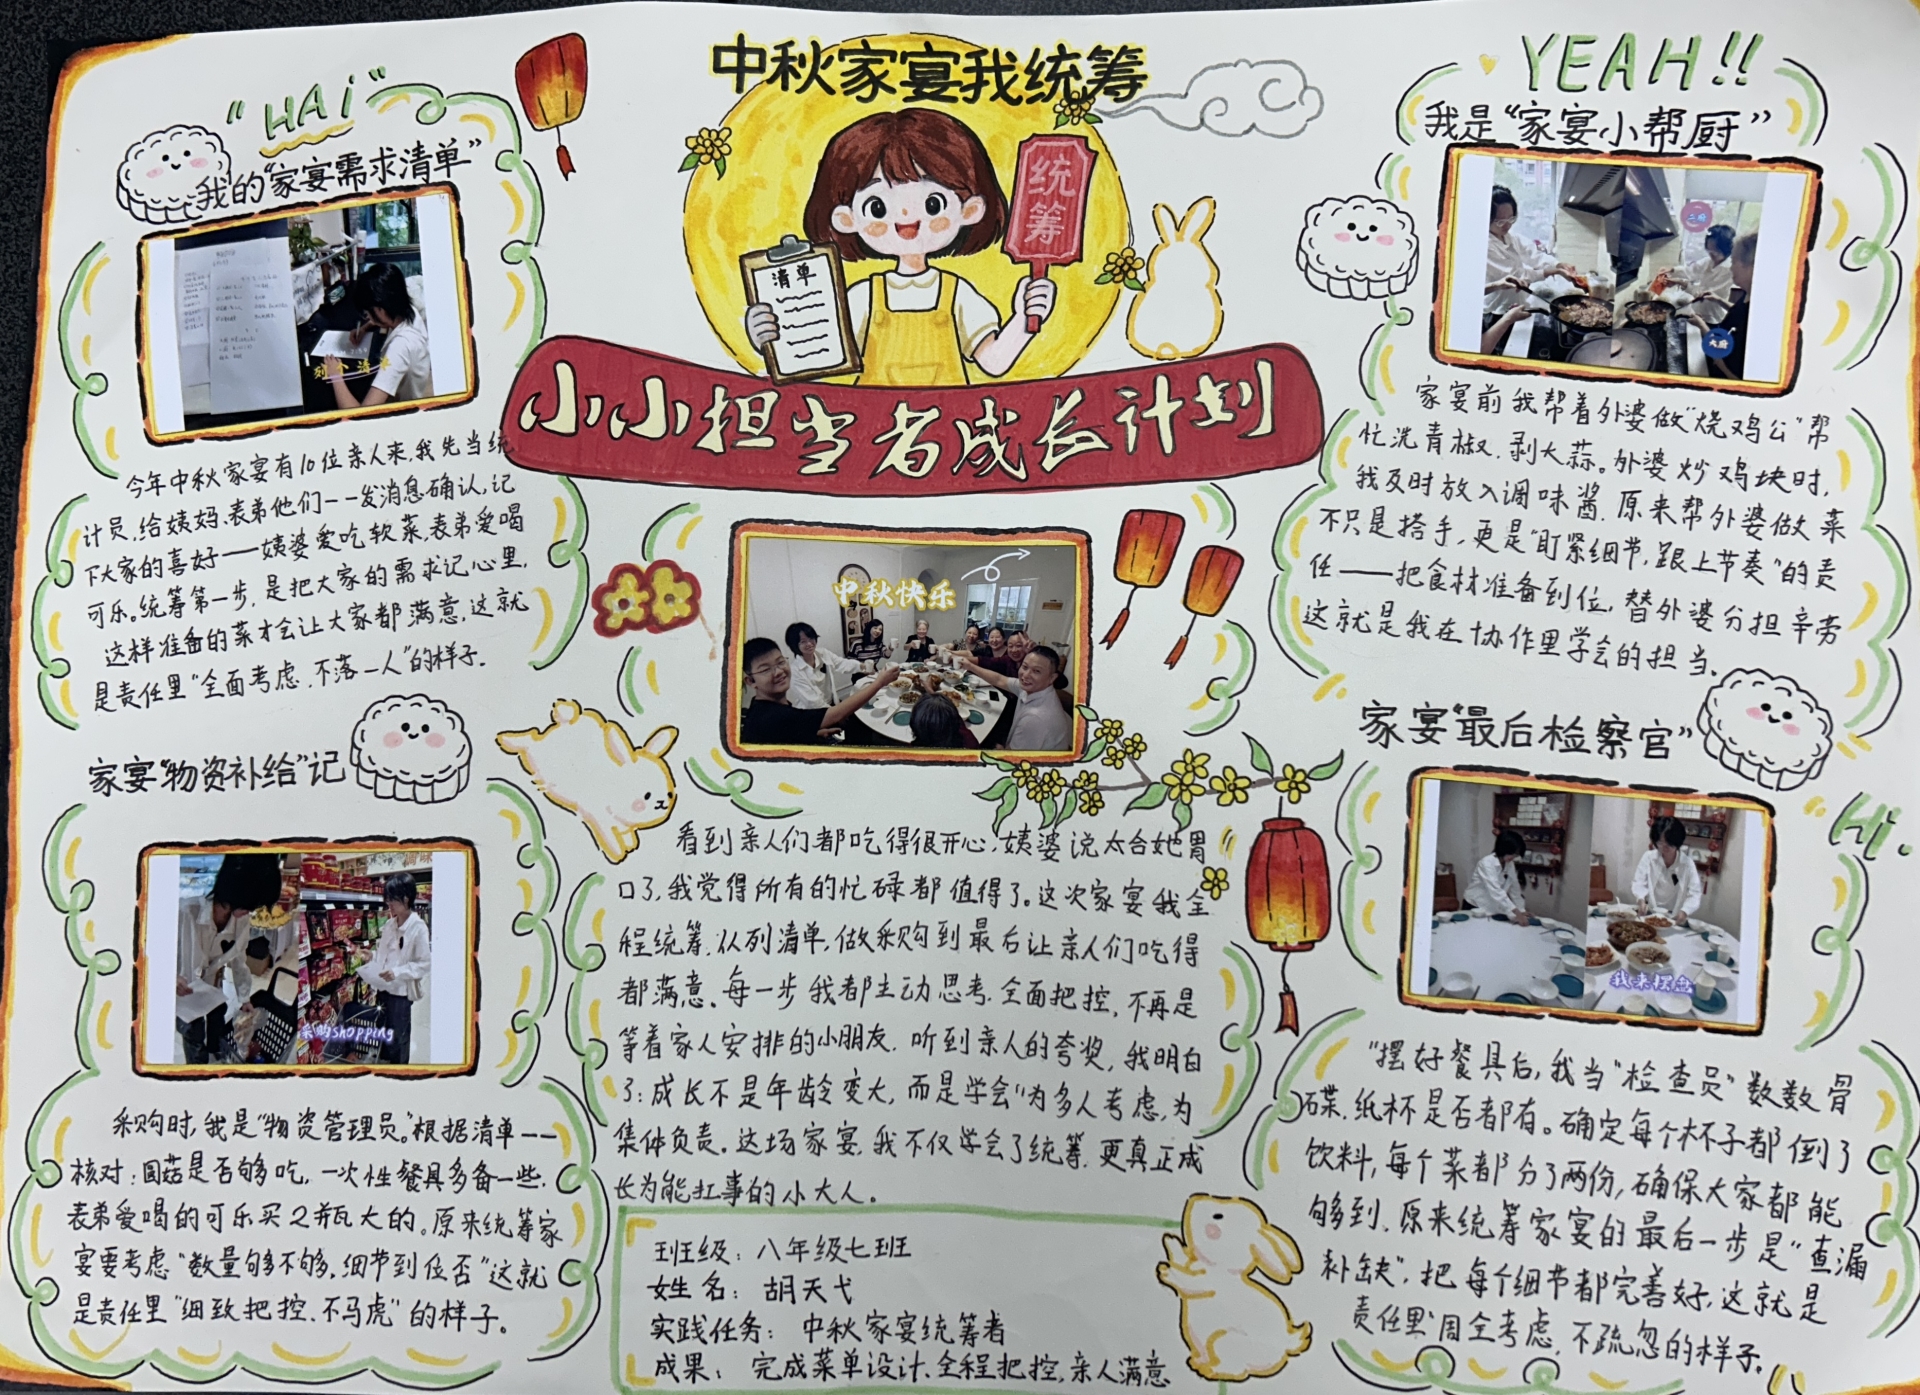 中秋家宴我统筹
统筹
清单
小小担当者成长计划
"HAi"
我的"家宴需求清单"
列个清单
今年中秋家宴有10位亲人来,我先当统
计员,给姨妈、表弟他们一一发消息确认,记
下大家的喜好——姨婆爱吃软菜,表弟爱喝
可乐。统筹第一步,是把大家的需求记心里,
这样准备的菜才会让大家都满意,这就
是责任里"全面考虑、不落一人"的样子。
家宴"物资补给"记
采购shopping
采购时,我是"物资管理员"。根据清单一一
核对:圆菇是否够吃,一次性餐具多备一些,
表弟爱喝的可乐买2瓶大的。原来统筹家
宴要考虑"数量够不够,细节到位否"这就
是责任里"细致把控、不马虎"的样子。
中秋快乐
看到亲人们都吃得很开心,姨婆说太合她胃
口了,我觉得所有的忙碌都值得了。这次家宴我全
程统筹,从列清单,做采购到最后让亲人们吃得
都满意。每一步我都主动思考、全面把控,不再是
等着家人安排的小朋友。听到亲人的夸奖,我明白
了:成长不是年龄变大,而是学会"为多人考虑,为
集体负责。这场家宴,我不仅学会了统筹,更真正成
长为能扛事的小大人。
班级:八年级七班
姓名:胡天弋
实践任务:中秋家宴统筹者
成果:完成菜单设计、全程把控,亲人满意
YEAH!!
我是"家宴小帮厨"
二厨
大厨
家宴前我帮着外婆做"烧鸡公"帮
忙洗青椒、剥大蒜。外婆炒鸡块时,
我及时放入调味酱。原来帮外婆做菜
不只是搭手,更是"盯紧细节,跟上节奏"的责
任——把食材准备到位,替外婆分担辛劳
这就是我在协作里学会的担当。
家宴"最后检察官"
"Hi.
我来摆盘
"摆好餐具后,我当"检查员"数数骨
碟、纸杯是否都有。确定每个杯子都倒了
饮料,每个菜都分了两份,确保大家都能
够到。原来统筹家宴的最后一步是"查漏
补缺",把每个细节都完善好,这就是
责任里"周全考虑,不疏忽的样子。